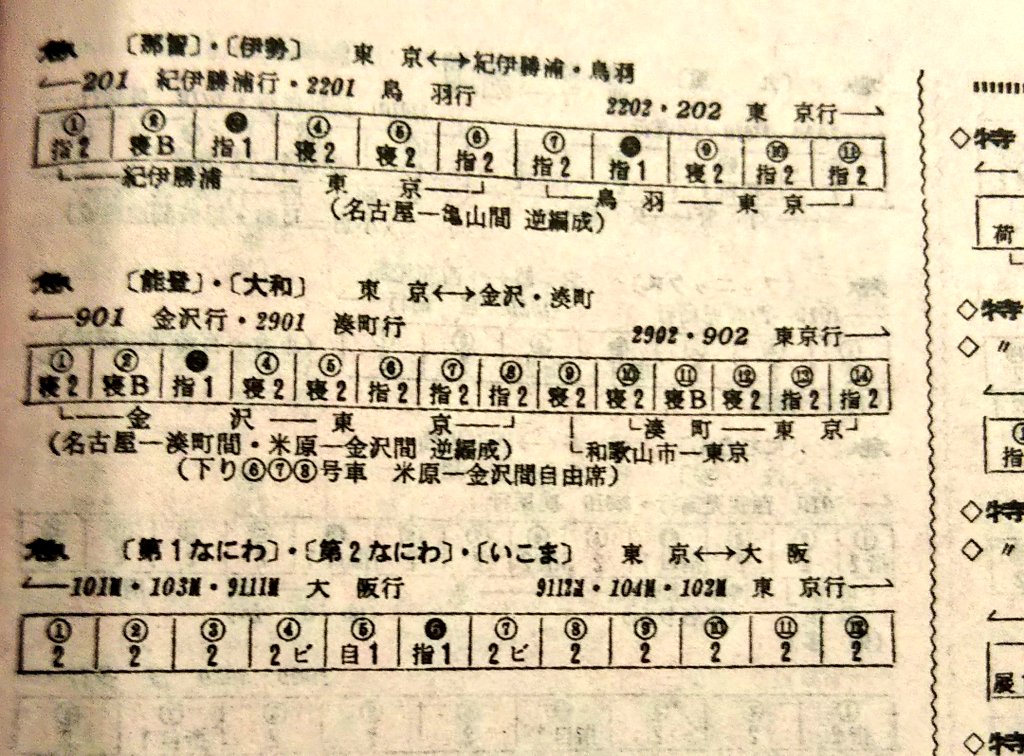 急 〔那智〕・〔伊勢〕 東 京←→紀伊勝浦・鳥羽
←─201 紀伊勝浦行・2201 鳥 羽行
2202・202 東 京行─→
① ② ❸ ④ ⑤ ⑥ ⑦ ❽ ⑨ ⑩ ⑪
指2 寝B 指1 寝2 寝2 指2 指2 指1 寝2 指2 指2
└──紀伊勝浦 ── 東 京──┘ └──鳥 羽──東 京──┘
(名古屋─亀山間 逆編成)
急 〔能登〕・〔大和〕 東 京←→金沢・湊町
←─901 金沢行・2901 湊町行
2902・902 東京行─→
① ② ❸ ④ ⑤ ⑥ ⑦ ⑧ ⑨ ⑩ ⑪ ⑫ ⑬ ⑭
寝2 寝B 指1 寝2 寝2 指2 指2 指2 寝2 寝2 寝B 寝2 指2 指2
└──金 沢──東 京──┘ └湊 町──東 京┘
(名古屋─湊町間・米原─金沢間 逆編成) └和歌山市─東京
(下り⑥⑦⑧号車 米原─金沢間自由席)
急 〔第1なにわ〕・〔第2なにわ〕・〔いこま〕 東 京←→大 阪
←─101M・103M・9111M 大 阪行
9112M・104M・102M 東 京行─→
① ② ③ ④ ⑤ ❻ ⑦ ⑧ ⑨ ⑩ ⑪ ⑫
2 2 2 2ビ 自1 指1 2ビ 2 2 2 2 2
◇特
荷
◇特
◇〃
指
◇特
◇〃
展
◇特